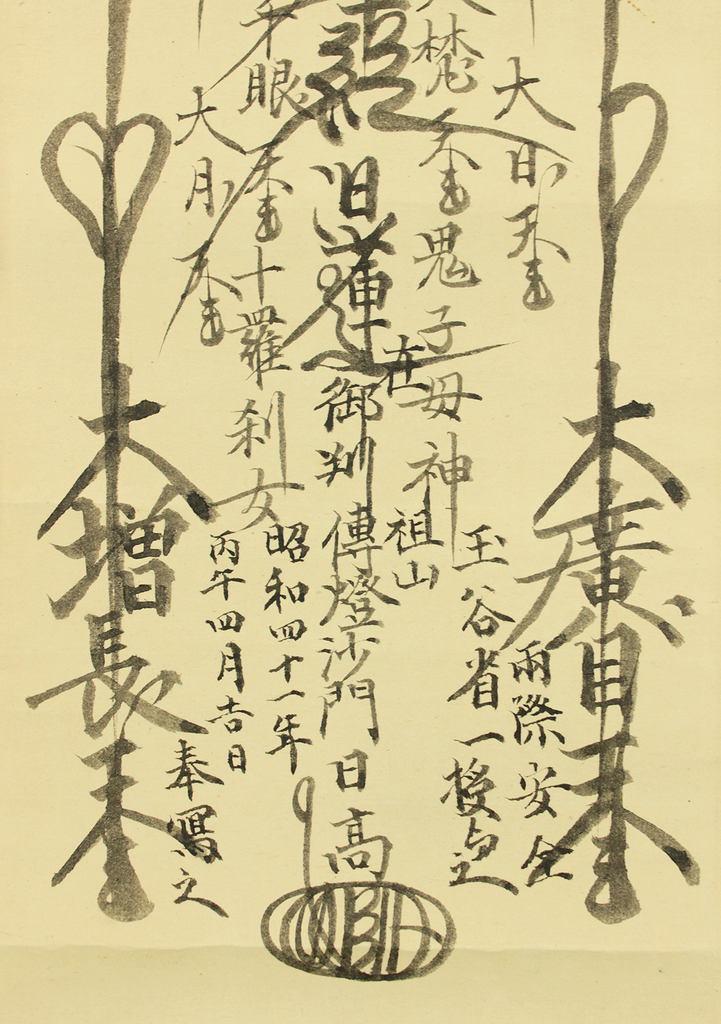 大廣目天王
雨際安全
大日天王
玉谷省一授与之
大梵天王
鬼子母神
在
祖山
經
日蓮
御判
傳燈沙門
日高
昭和四十一年
眼天王
十羅刹女
丙午四月吉日
大月天王
奉寫之
大增長天王